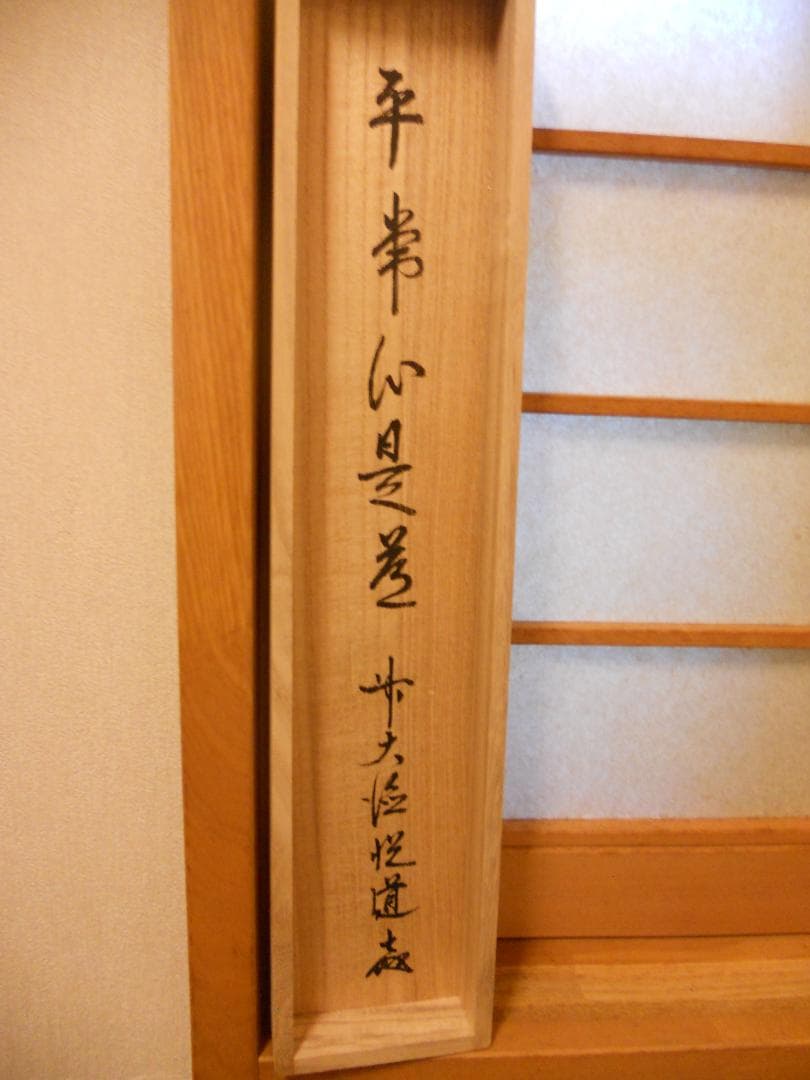 平常心是道 前大徳悦道